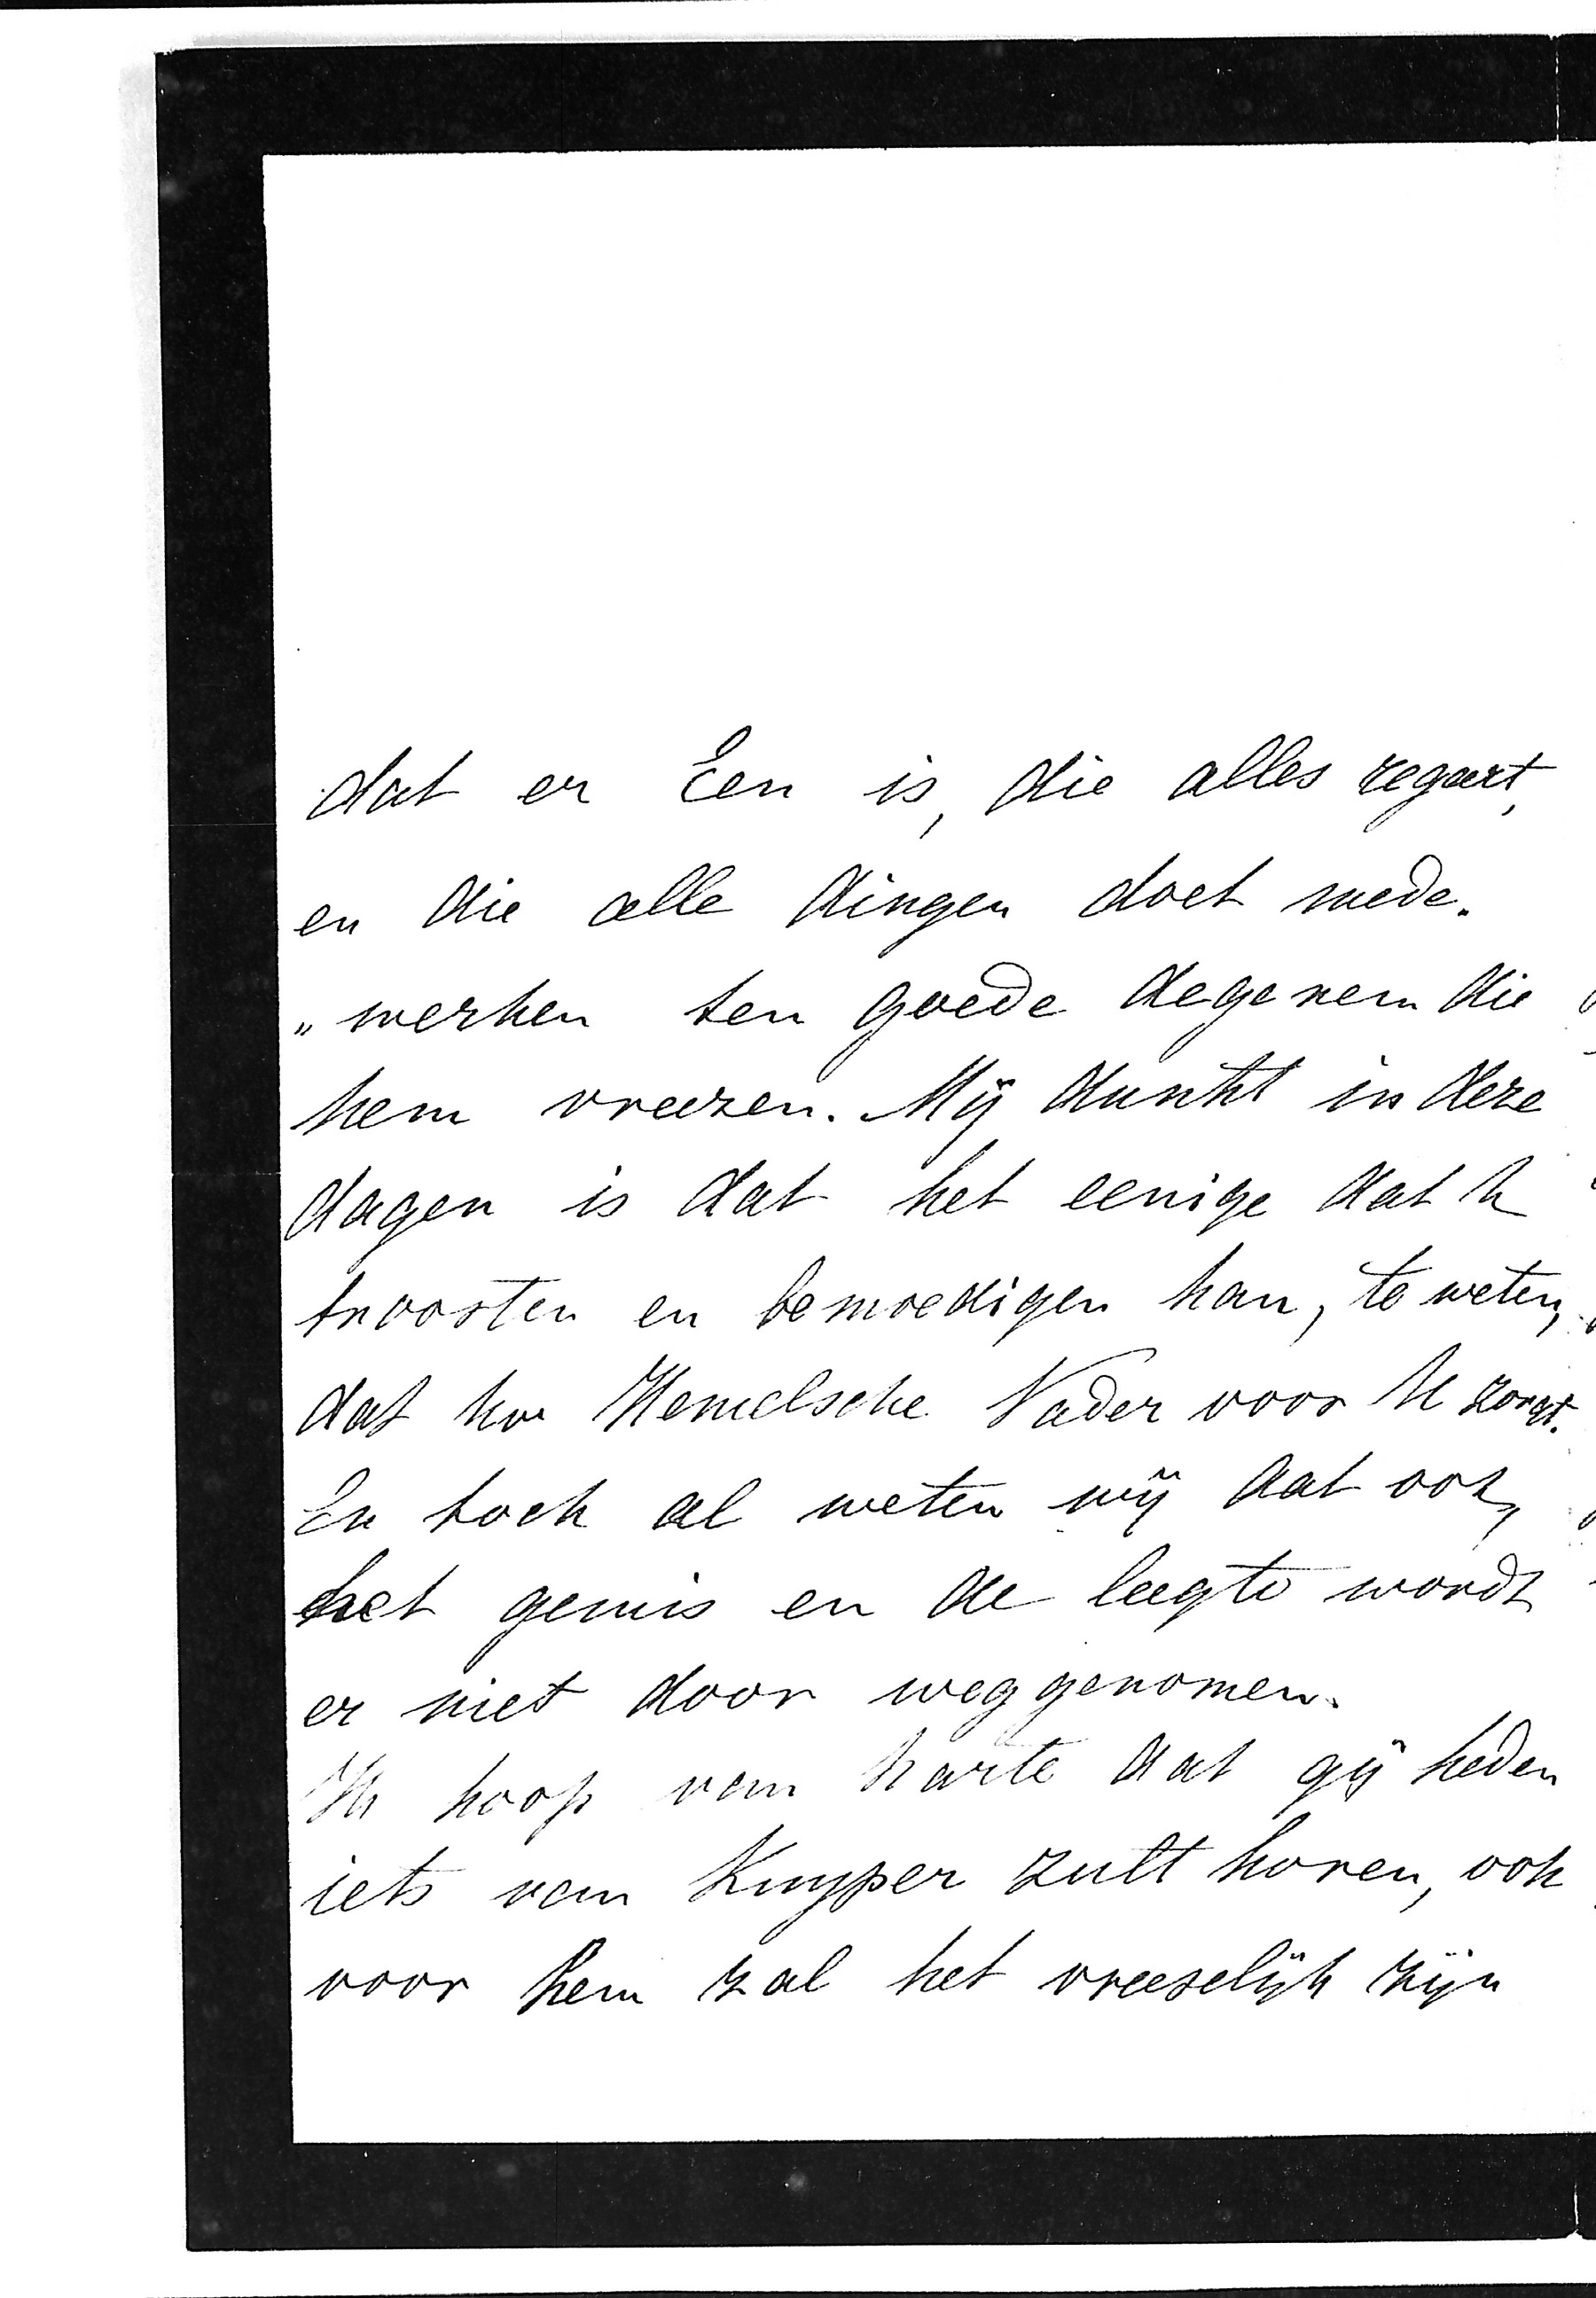 dat er Een is, die alles regeert,
en die alle dingen doet mede.
„werken ten goede degenen die
hem vreezen. Mij dunkt in deze
dagen is dat het eenige dat U
troosten en bemoedigen kan, te weten,
dat Uw Hemelsche Vader voor U zorgt.
En toch al weten wij dat ook,
het gemis en de leegte wordt
er niet door weggenomen.
Ik hoop van harte dat gij heden
iets van Kuyper zult horen, ook
voor hem zal het vreeselijk zijn